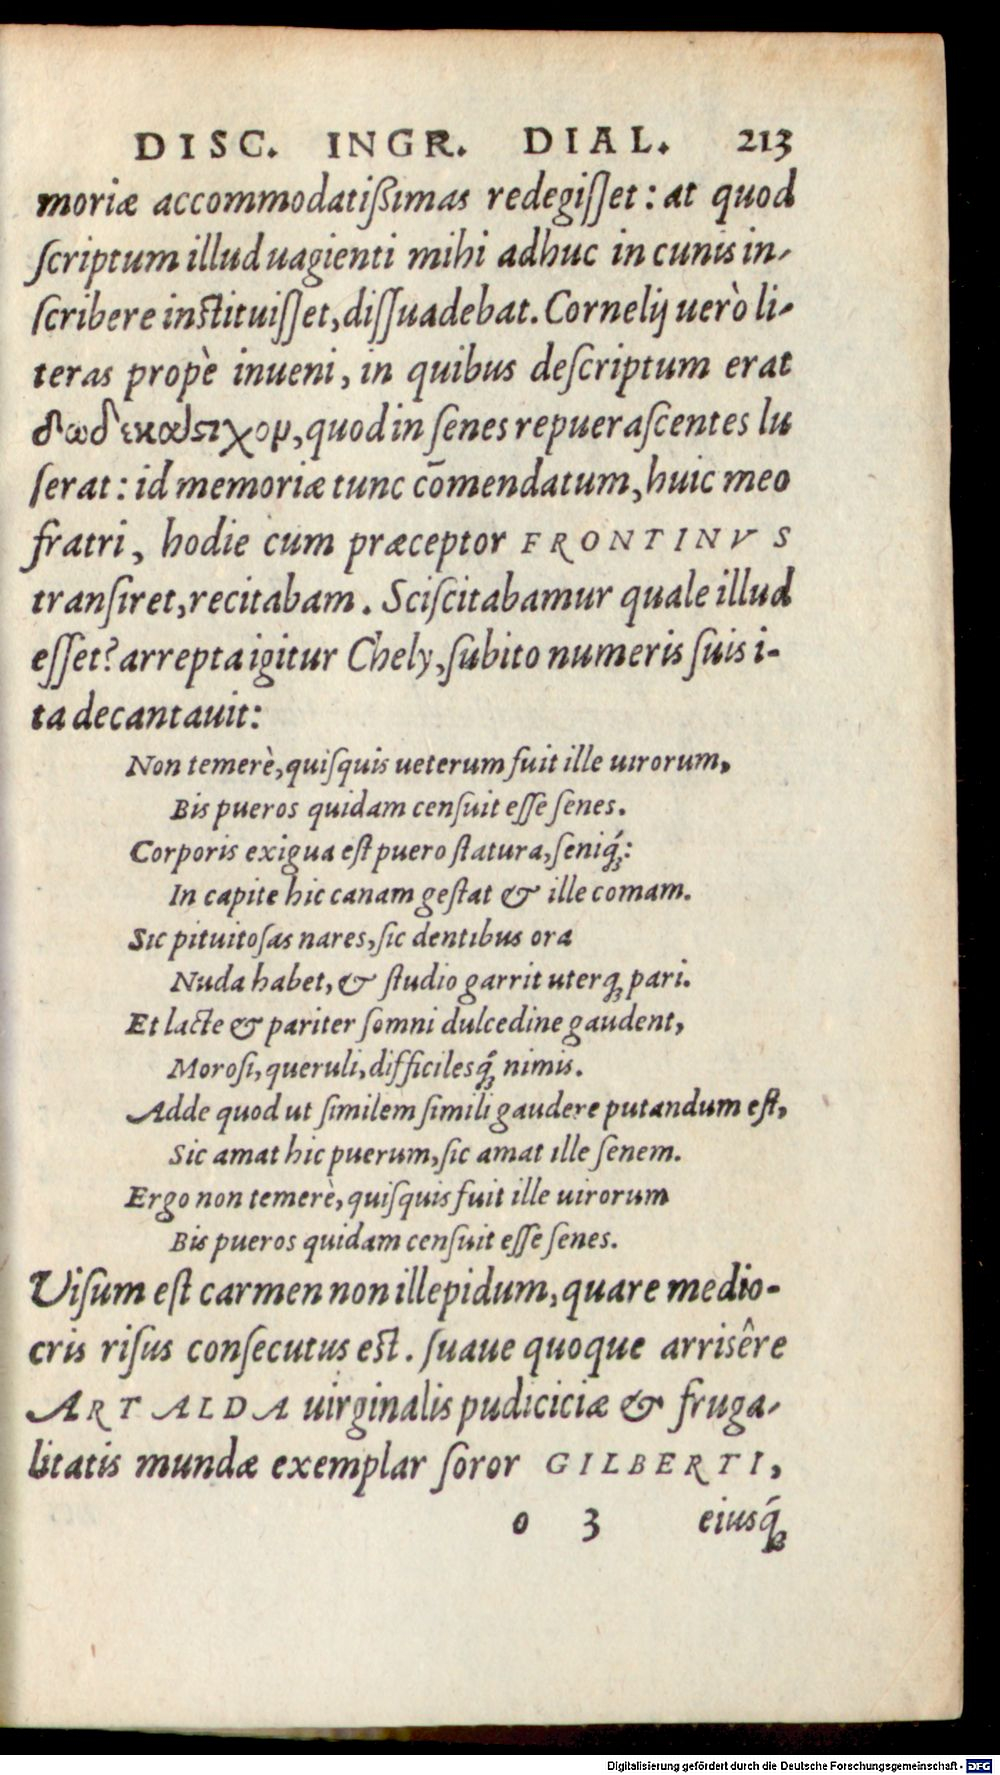 DISC. INGR. DIAL. 213
moriæ accommodatißimas redegiſſet: at quod
ſcriptum illud uagienti mihi adhuc in cunis in-
ſcribere inſtituiſſet, diſſuadebat. Cornelij uerò li-
teras propè inueni, in quibus deſcriptum erat
δωδεκάςιχον, quod in ſenes repueraſcentes lu
ſerat: id memoriæ tunc cōmendatum, huic meo
fratri, hodie cum præceptor FRONTINVS
tranſiret, recitabam. Sciſcitabamur quale illud
eſſet? arrepta igitur Chely, ſubito numeris ſuis i-
ta decantauit:
Non temerè, quiſquis ueterum fuit ille uirorum,
Bis pueros quidam cenſuit eſſe ſenes.
Corporis exigua eſt puero ſtatura, ſeniq́;:
In capite hic canam geſtat & ille comam.
Sic pituitoſas nares, ſic dentibus ora
Nuda habet, & ſtudio garrit uterq; pari.
Et lacte & pariter ſomni dulcedine gaudent,
Moroſi, queruli, difficilesq́; nimis.
Adde quod ut ſimilem ſimili gaudere putandum eſt,
Sic amat hic puerum, ſic amat ille ſenem.
Ergo non temerè, quiſquis fuit ille uirorum
Bis pueros quidam cenſuit eſſe ſenes.
Uiſum eſt carmen non illepidum, quare medio-
cris riſus conſecutus eſt. ſuaue quoque arrisêre
ARTALDA uirginalis pudiciciæ & fruga-
litatis mundæ exemplar ſoror GILBERTI,
o 3 eiusq́;
Digitalisierung gefördert durch die Deutsche Forschungsgemeinschaft - DFG